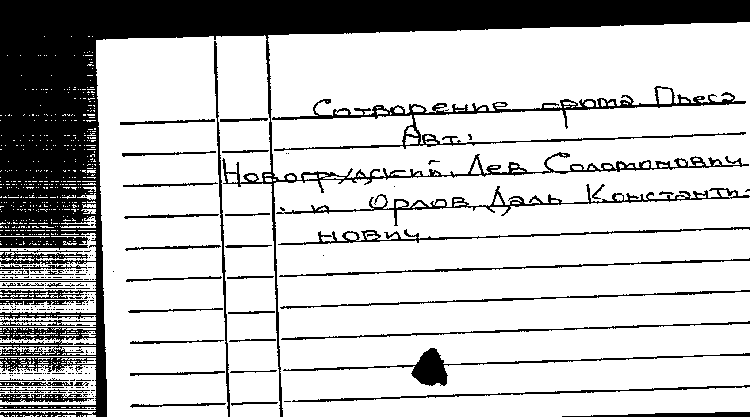 Сотворение грома Пьеса
Авт.:
Новогрудский, Лев Соломонович
и Орлов, Даль Константи-
нович.